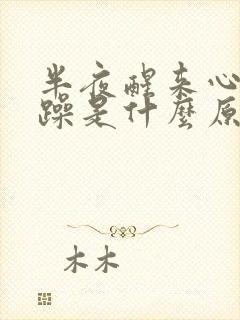 半夜醒来心
躁是什麼原
木木